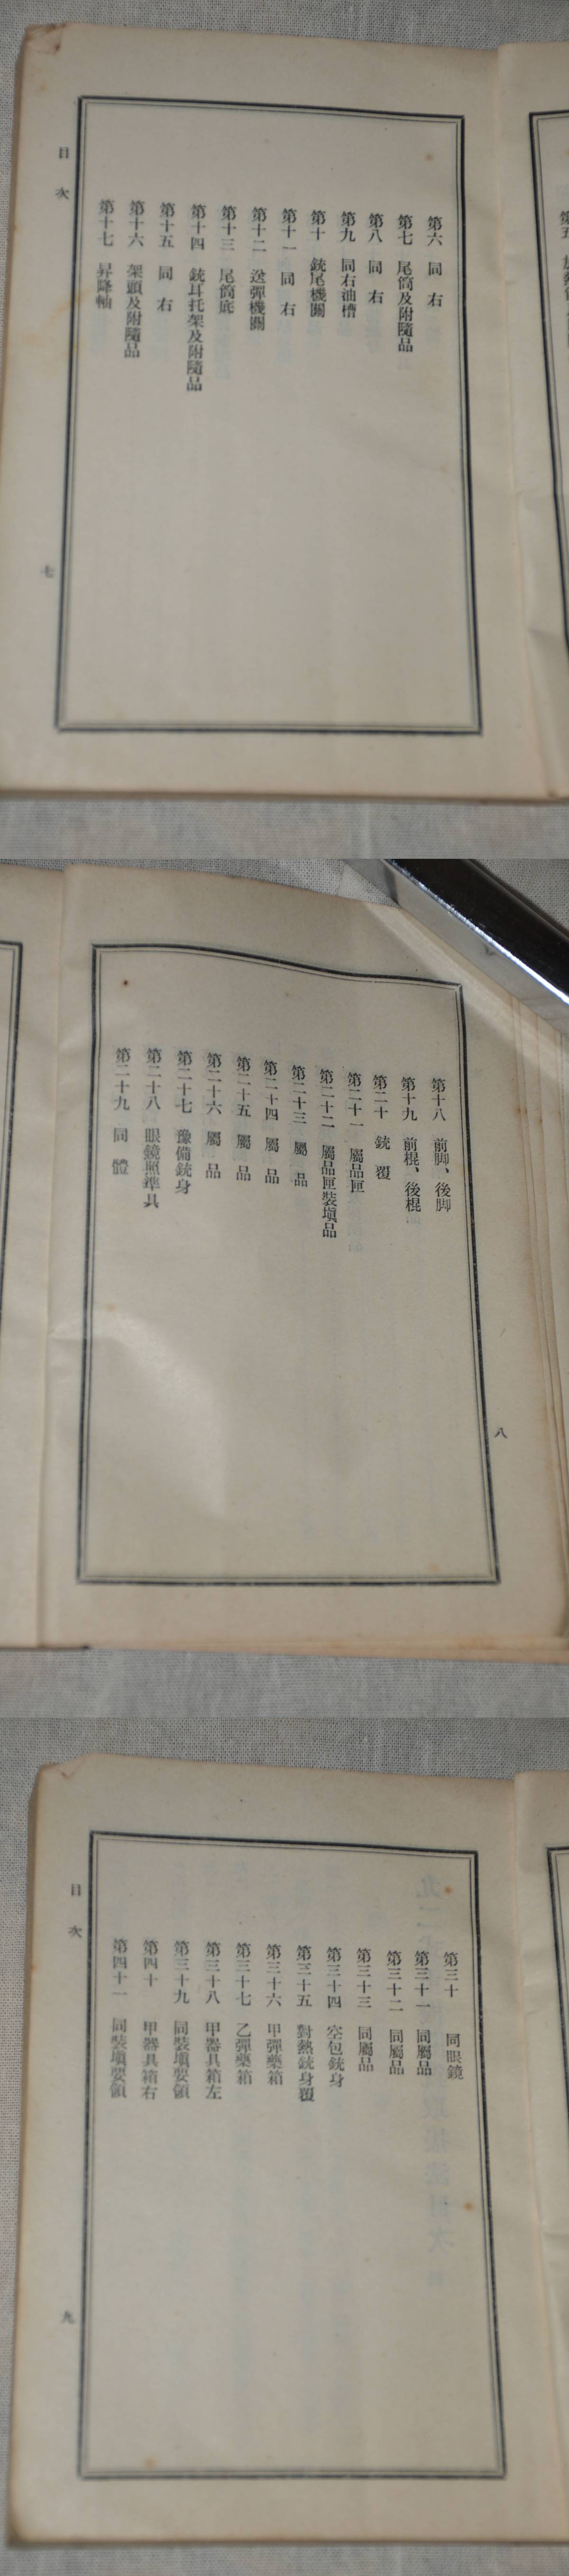 目次
第六 同右
第七 尾筒及附隨品
第八 同右
第九 同右油槽
第十 銃尾機關
第十一 同右
第十二 送彈機關
第十三 尾筒底
第十四 銃耳托架及附隨品
第十五 同右
第十六 架頭及附隨品
第十七 昇降軸
七
第十八 前脚、後脚
第十九 前棍、後棍
第二十 銃覆
第二十一 屬品匣
第二十二 屬品匣裝塡品
第二十三 屬品
第二十四 屬品
第二十五 屬品
第二十六 屬品
第二十七 豫備銃身
第二十八 眼鏡照準具
第二十九 同體
八
目次
第三十 同眼鏡
第三十一 同屬品
第三十二 同屬品
第三十三 同屬品
第三十四 空包銃身
第三十五 對熱銃身覆
第三十六 甲彈藥箱
第三十七 乙彈藥箱
第三十八 甲器具箱左
第三十九 同裝塡要領
第四十 甲器具箱右
第四十一 同裝塡要領
九